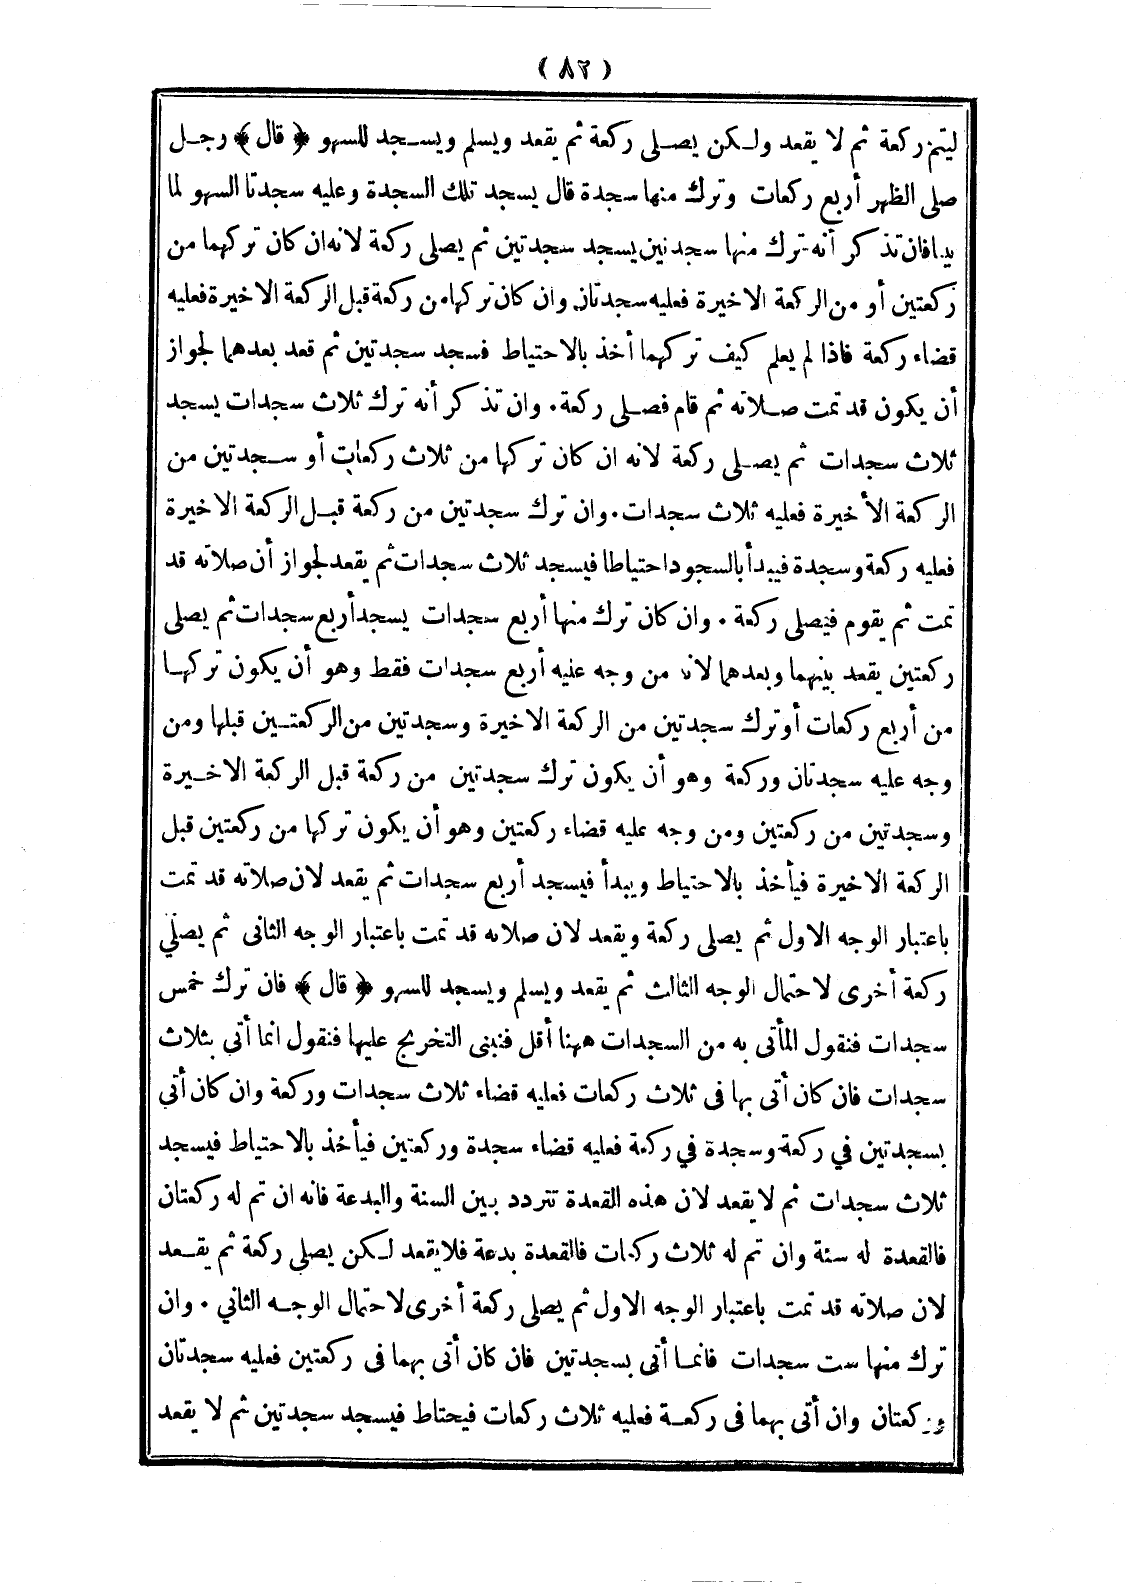 ( ٨٢ )
ليتم ركعة ثم لا يقعد ولكن يصلى ركعة ثم يقعد ويسلم ويسجد للسهو ﴿ قال ﴾ رجل
صلى الظهر أربع ركعات وترك منها سجدة قال يسجد تلك السجدة وعليه سجدتا السهو لما
بينا فان تذكر أنه ترك منها سجدتين يسجد سجدتين ثم يصلى ركعة لانه ان كان تركهما من
ركعتين أو من الركعة الاخيرة فعليه سجدتان وان كان تركها من ركعة قبل الركعة الاخيرة فعليه
قضاء ركعة فاذا لم يعلم كيف تركهما أخذ بالاحتياط فسجد سجدتين ثم قعد بعدهما لجواز
أن يكون قد تمت صلاته ثم قام فصلى ركعة . وان تذكر أنه ترك ثلاث سجدات يسجد
ثلاث سجدات ثم يصلى ركعة لانه ان كان تركها من ثلاث ركعات أو سجدتين من
الركعة الأخيرة فعليه ثلاث سجدات . وان ترك سجدتين من ركعة قبل الركعة الاخيرة
فعليه ركعة وسجدة فيبدأ بالسجود احتياطا فيسجد ثلاث سجدات ثم يقعد لجواز أن صلاته قد
تمت ثم يقوم فيصلى ركعة . وان كان ترك منها أربع سجدات يسجد أربع سجدات ثم يصلى
ركعتين يقعد بينهما وبعدهما لانه من وجه عليه أربع سجدات فقط وهو أن يكون تركها
من أربع ركعات أو ترك سجدتين من الركعة الاخيرة وسجدتين من الركعتين قبلها ومن
وجه عليه سجدتان وركعة وهو أن يكون ترك سجدتين من ركعة قبل الركعة الاخيرة
وسجدتين من ركعتين ومن وجه عليه قضاء ركعتين وهو أن يكون تركها من ركعتين قبل
الركعة الاخيرة فيأخذ بالاحتياط ويبدأ فيسجد أربع سجدات ثم يقعد لان صلاته قد تمت
باعتبار الوجه الاول ثم يصلى ركعة ويقعد لان صلاته قد تمت باعتبار الوجه الثانى ثم يصلي
ركعة أخرى لاحتمال الوجه الثالث ثم يقعد ويسلم ويسجد للسهو ﴿ قال ﴾ فان ترك خمس
سجدات فنقول المأتى به من السجدات ههنا أقل فنبنى التخريج عليها فنقول انما أتي بثلاث
سجدات فان كان أتى بها فى ثلاث ركعات فعليه قضاء ثلاث سجدات وركعة وان كان أتي
بسجدتين في ركعة وسجدة في ركعة فعليه قضاء سجدة وركعتين فيأخذ بالاحتياط فيسجد
ثلاث سجدات ثم لا يقعد لان هذه القعدة تتردد بين السنة والبدعة فانه ان تم له ركعتان
فالقعدة له سنة وان تم له ثلاث ركعات فالقعدة بدعة فلا يقعد لكن يصلى ركعة ثم يقعد
لان صلاته قد تمت باعتبار الوجه الاول ثم يصلى ركعة أخرى لاحتمال الوجه الثاني . وان
ترك منها ست سجدات فانما أتى بسجدتين فان كان أتى بهما فى ركعتين فعليه سجدتان
وركعتان وان أتى بهما فى ركعة فعليه ثلاث ركعات فيحتاط فيسجد سجدتين ثم لا يقعد